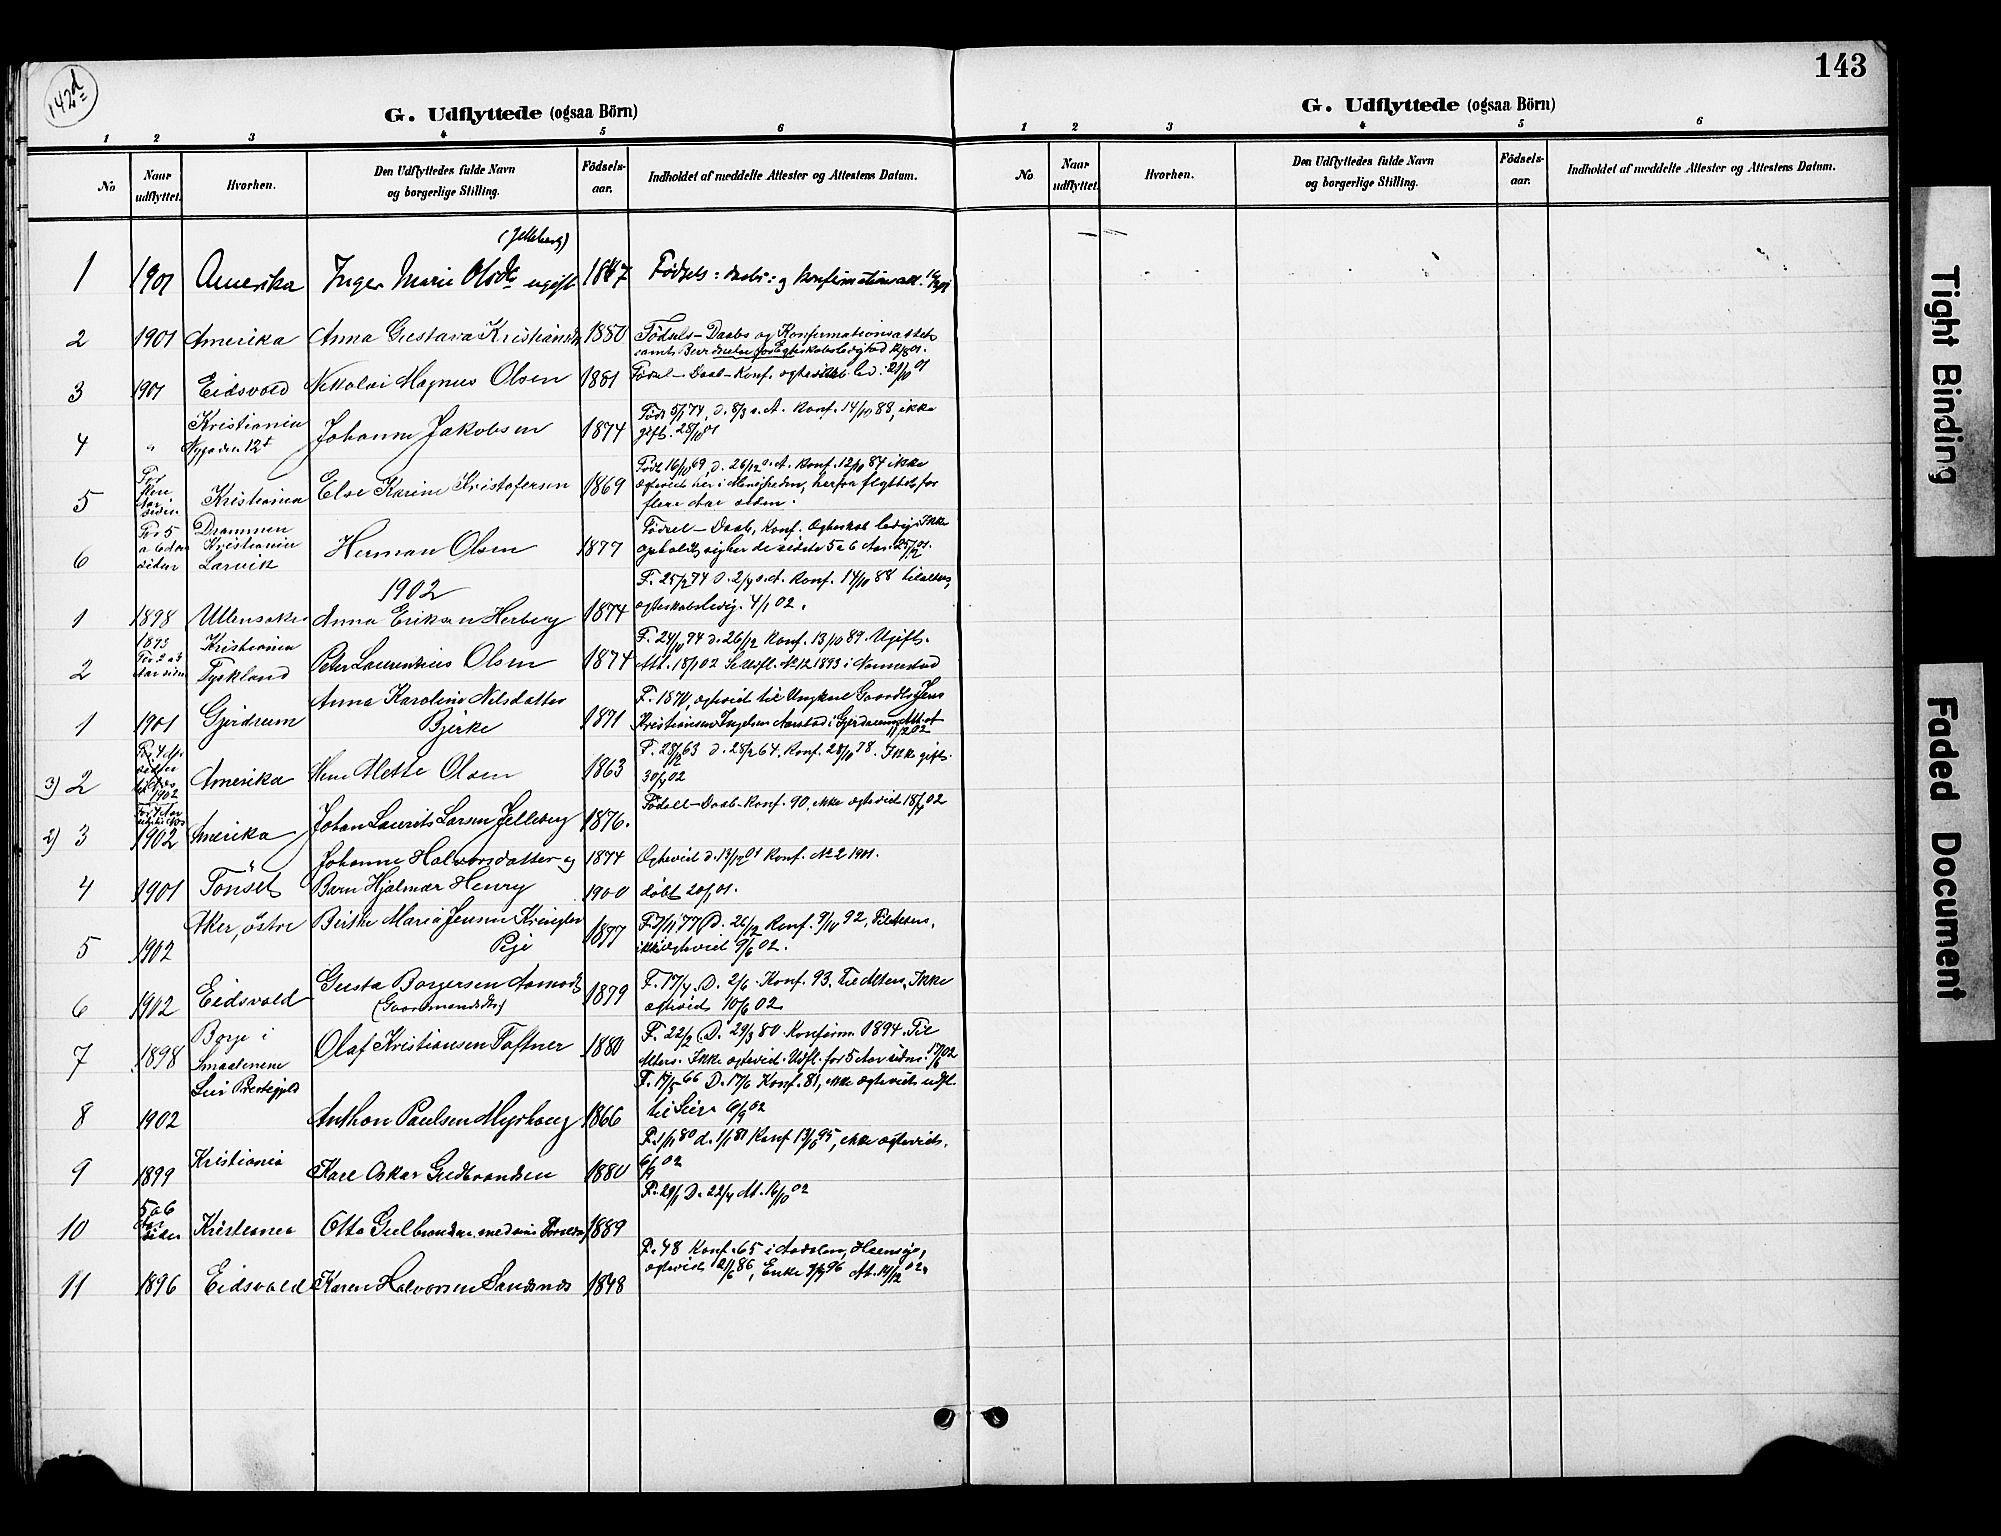 142d
G. Udflyttede (ogsaa Börn)
1 2 3 4 5 6
No Naar udflyttet. Hvorhen. Den Udflyttedes fulde Navn og borgerlige Stilling. Födsels-aar. Indholdet af meddelte Attester og Attestens Datum.
(Jelleberg)
1 1901 Amerika Inger Marie Olsdtr ugift 1867 Fødsels: daabs: og Konfirmationsatt.
2 1901 Amerika Anna Gustava Kristiansdtr 1880 Fødsels- Daabs og Konfirmationsattest
samt Bevidnelse for Ægteskabsledighed 12/8 01.
3 1901 Eidsvold Nikolai Magnus Olsen 1881 Fødsel- Daab- Konf. 21/10 01
4 " Kristiania Johanne Jakobsen 1874 Født 5/1 74, d. 8/3 s. A. Konf. 14/10 88, ikke
gift. 28/10 01
5 Kristiania Else Karine Kristofersen 1869 Født 16/10 69, d. 26/12 s. A. Konf. 12/10 84 ikke
ægteviet her i Menigheden, herfra flyttet for
flere Aar siden.
6 For 5 a 6 Aar siden Drammen Kristiania Larvik Herman Olsen 1877 Fødsel- Daab, Konf. Ægteskab ledig. Ikke
opholdt sig her de sidste 5 a 6 Aar. 25/12 01.
1902
1 1898 Ullensaker Anna Eriksen Herberg 1874 F. 25/2 74 D. 2/4 s. A. Konf. 14/10 88 til alters,
ægteskabsledig. 4/1 02.
2 1893 For 2 a 3 Aar siden Kristiania Tyskland Peter Laurentius Olsen 1874 F. 24/10 74 d. 26/12 Konf. 13/10 89. Ugift.
Att. 18/1 02 Se Udfl. No 12 1893 i Nannestad
1 1901 Gjerdrum Anna Karoline Nilsdatter Bjerke 1871 F. 1871, ægteviet til Ungkarl Gaardbr. Jens
Kristiansen Ingelsrud Aarstad i Gjerdrum, Att. 11/2 02
3) 2 1902 Amerika Mette Olsen 1863 F. 28/2 63 d. 28/2 64. Konf. 28/10 78. Ikke gift.
30/4 02
2) 3 1902 Amerika Johan Laurits Larsen Jelleberg 1876. Fødsel- Daab- Konf. 90, ikke ægteviet 18/4 02
4 1901 Tönset Johanne Halvorsdatter og 1874 Ægteviet d. 13/12 01 Konf. No 2 1901.
Barn Hjalmar Henry 1900 døbt 20/1 01.
5 1902 Aker, östre Birthe Marie Jensen Kringler Eje 1877 F. 7/11 77 D. 26/12 Konf. 9/10 92, Til Alters,
ikke ægteviet 9/6 02.
6 1902 Eidsvold Gusta Borgersen Aamodt 1879 F. 17/4. D. 2/6. Konf. 93. til Alters. Ikke
(Gaardmandsdtr) ægteviet 10/6 02.
7 1898 Borge i Smaalenene Olaf Kristiansen Toftner 1880 F. 22/2 D. 29/3 80. Konfirm. 1894. Til
Alters. Ikke ægteviet. Udfl. for 5 Aar siden. 17/6 02
8 1902 Lier Prestegjeld Anthon Paulsen Myrhaug 1866 F. 17/5 66 D. 17/6 Konf. 81, ikke ægteviet udfl.
til Lier. 6/9 02
9 1899 Kristiania Karl Oskar Gudbrandsen 1880 F. 1/11 80 d. 1/1 81 Konf 13/10 95, ikke ægteviet.
6/9 02
10 5 a 6 Aar siden Kristiania Otto Gulbrandsen med sine Forældre 1889 F. 29/1 D. 22/4 Att. 16/10 02
11 1896 Eidsvold Karen Halvorsen Sandsnæs 1848 F. 48 Konf. 65 i Aadalen,
ægteviet 12/6 86, Enke 9/9 96 Att. 14/12 02.
143
G. Udflyttede (ogsaa Börn)
1 2 3 4 5 6
No Naar udflyttet. Hvorhen. Den Udflyttedes fulde Navn og borgerlige Stilling. Födsels-aar. Indholdet af meddelte Attester og Attestens Datum.
Tight Binding
Faded Document